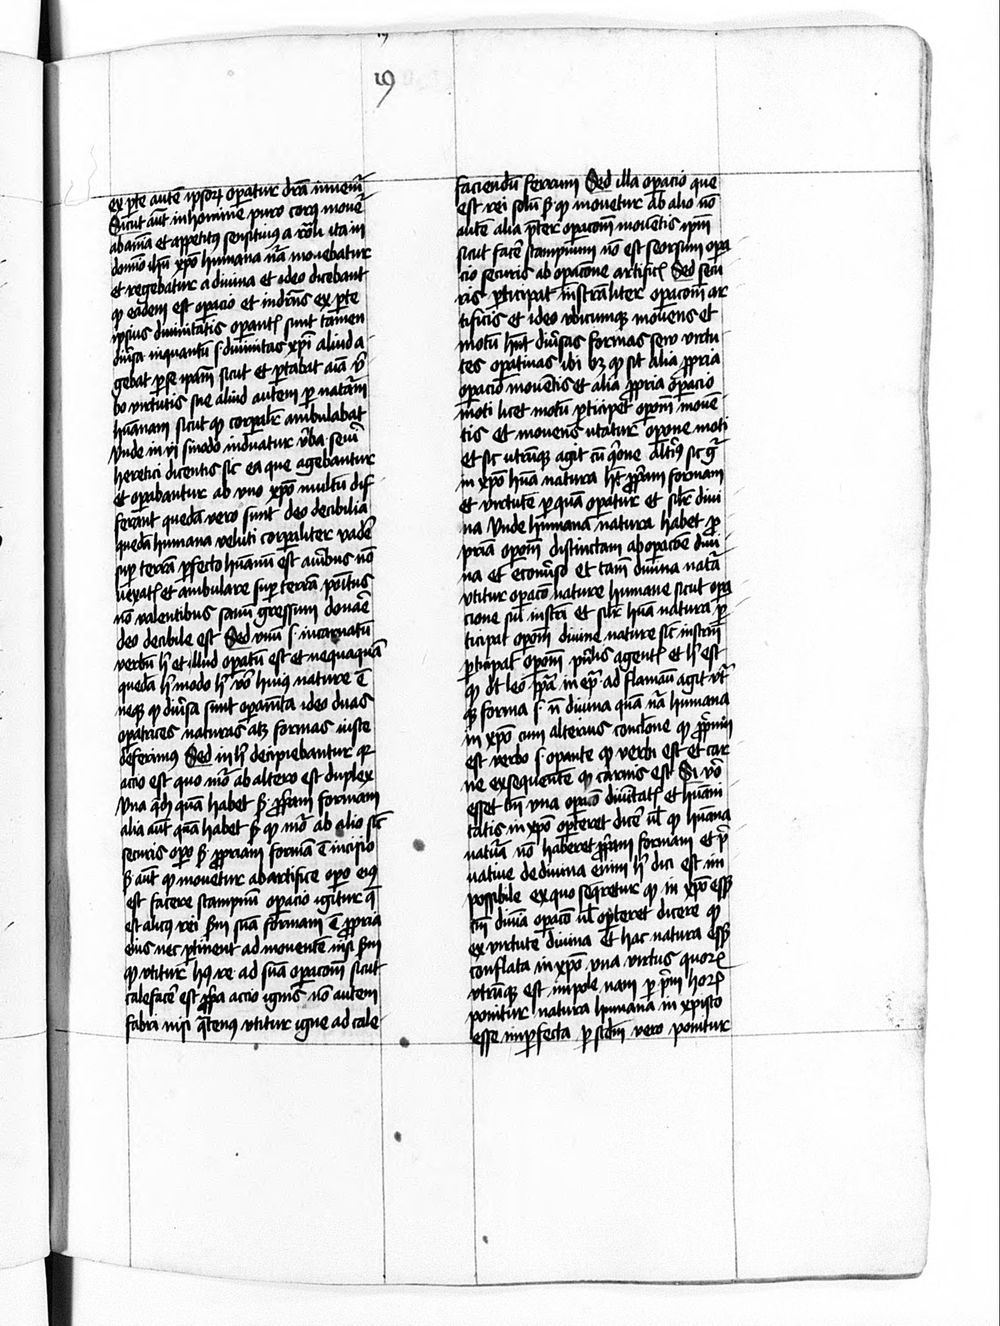 19
ex pte autē ipsorꝫ opatur dr̄a inueniͬ
Sicut aūt in homine puro corpꝯ mouēͬ
ab aīma et appetitꝯ sensitiuꝯ a rōnli ita in
domīo ihū xpō humana nā mouebatur
et regebatur a diuina et ideo dicebant
qꝫ eadem est opacio et indr̄ns ex pte
ipsius diuinitatis opantis sunt tamen
diūsa inquantū s diuinitas xpi aliud a
gebat p se ipam sicut et portabat oīa ū
bo virtutis sue aliud autem p naturam
hūanam sicut qꝫ corpalr ambulabat
Vnde in vi sinodo inducatur v̄ba seueri
heretici dicentis sic ea que agebantur
et opabantur ab vno xpō multū dif
ferunt quedā vero sunt deo decibilia
quedā humana veluti corpaliter vadere
sup terrā pfecto hūanū est curibus uero
uexatis et ambulare sup terrā penitus
nō valentibus sanū gressum donare
deo decibile est Sed vnū s incarnatū
verbū hͦ et illud opatū est et nequaquā
quedā hͦ modo hͦ uō huiꝯ nature ē
neqꝫ qꝫ diūsa sunt opamēta ideo duas
opatrices naturas atqꝫ formas iuste
deferimꝯ Sed in hͦ decipiebantur qꝛ
actio est quo mōͬ ab altero est duplex
Vna qͥdē quā habet ẜm ppriam formam
alia aūt quā habet ẜm qꝫ mōͬ ab alio sic̄
securis opō ẜm ppriam formā ē incisio
ẜm aūt qꝫ mouetur ab artifice opō eiꝯ
est facere scampnum opacio igitur qͤ
est alicꝯ rei ẜm suā formam ē ppria
eius nec ptinent ad mouentē nisi ẜm
qꝫ vtitur hꝰ re ad suā opacom̄ sicut
calefacere est ppa actio ignis nō autem
fabri nisi qͣtenus vtitur igne ad cale
faciendū ferrum Sed illa opacio que
est rei solū ẜm qꝫ mouetur ab alio nō
autē alia pter opacom̄ mouentis ipm̄
sicut facere scampnum nō est seorsum opa
cio securis ab opacone artificis Sed secu
ris pticipat instrūaliter opacom̄ ar
tificis et ideo vbicumqꝫ mouens et
motū hn̄t diūsas formas seu virtu
tes opatiuas ibi oꝫ qꝫ sit alia ppria
opacio mouentis et alia ppria opacio
moti licet motū pticipet opom̄ mouē
tis et mouens vtatur opone moti
et sic utrumqꝫ agit cū cōione altīus sic gͦ
in xpō hūa natura hꝫ ppriam formam
et virtutē p quā opatur et silr diui
na Vnde humana natura habet p
priā opom̄ distinctam ab opacōe diui
na et econūso et tam̄ diuina natura
vtitur opacōe nature humane sicut opa
cione sui instrī et silr hūa natura p
ticipat opom̄ diuine nature sic̄ instrm̄
pticipat opom̄ pn̄cipalis agentis et hͦ est
qꝫ dt leo ppa in epla ad flauianū agit utͬ
qꝫ forma s tā diuina quā nā humana
in xpō cum alterius coīone qꝫ pprium
est verbo s opante qꝫ verbi est et car
ne exsequente qꝫ carnis est Si vō
esset tm̄ vna opacō diuitatis et hūani
tatis in xpō oporteret dicere ul qꝫ hūana
natura nō haberet ppriam formam et v̄
tutem de diuina enim hͦ dici est im
possibile ex quo seqretur qꝫ in xpō esset
tm̄ diuīa opacō ul oporteret dicere qꝫ
ex virtute diuina et hac natura esset
conflata in xpō vna virtus quorum
utrumqꝫ est impole nam p pmum horum
ponitur natura humana in xpisto
esse imperfecta p scdm̄ vero ponitur